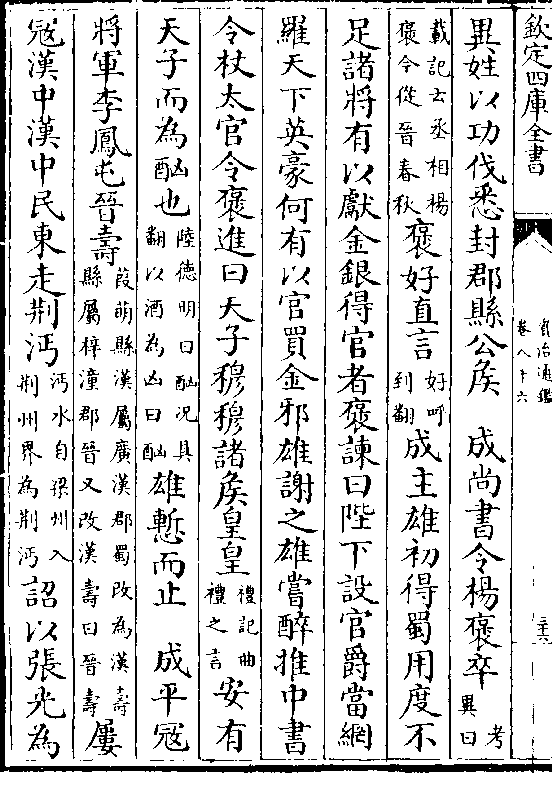 欽定四庫全書
資治通鑑
卷八十六
異姓以功伐悉封郡縣公矦　成尚書令楊褒卒考異曰
載記云丞相楊褒今從晉春秋褒好直言好呼到翻成主雄初得蜀用度不
足諸將有以獻金銀得官者褒諫曰陛下設官爵當網
羅天下英豪何有以官買金邪雄謝之雄嘗醉推中書
令杖太官令褒進曰天子穆穆諸矦皇皇禮記曲禮之言安有
天子而為酗也陸德明曰酗況具翻以酒為凶曰酗雄慙而止　成平寇
將軍李鳳屯晉壽葭萌縣漢屬廣漢郡蜀改為漢壽縣屬梓潼郡晉又改漢壽曰晉壽屢
寇漢中漢中民東走荆沔沔水自梁州入荆州界為荆沔詔以張光為